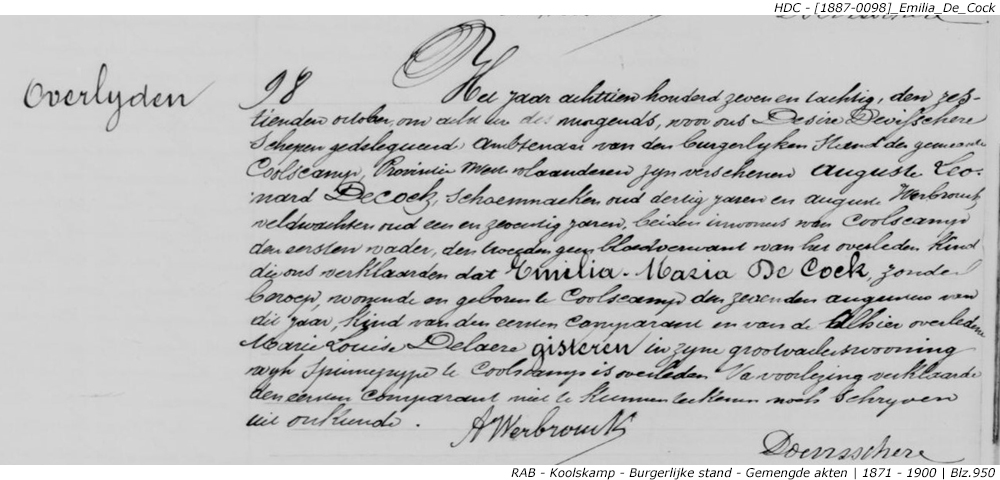 HDC - [1887-0098]_Emilia_De_Cock
Overlyden
98
Het jaar achttien honderd zeven en tachtig, den zes-
tienden october, om acht ure des morgends, voor ons Desire Devisschere
Schepen gedelegueerde Ambtenaar van den burgerlyken Stand der gemeente
Coolscamp, Provintie West-vlaanderen zyn verschenen Auguste Leo-
nard Decock, Schoenmaker oud dertig jaren en auguste Werbrouck
veldwachter oud een en zeventig jaren, beiden inwoners van Coolscamp
den eersten vader, den tweeden geen bloedverwant van het overleden Kind
die ons verklaarden dat Emilia-Maria De Cock, zonder
beroep, wonende en geboren te Coolscamp den zevenden augustus van
dit jaar, Kind van den eersten Comparant en van de Alhier overledene
Marie Louise Delaere gisteren in zyne grootvaderswooning
wyk te Coolscamp is overleden. Na voorlezing verklaarde
den eersten Comparant niet te Kunnen teekenen noch Schryven
uit oorkunde.
AWerbrouck
Devisschere
RAB - Koolskamp - Burgerlijke stand - Gemengde akten | 1871 - 1900 | Blz.950